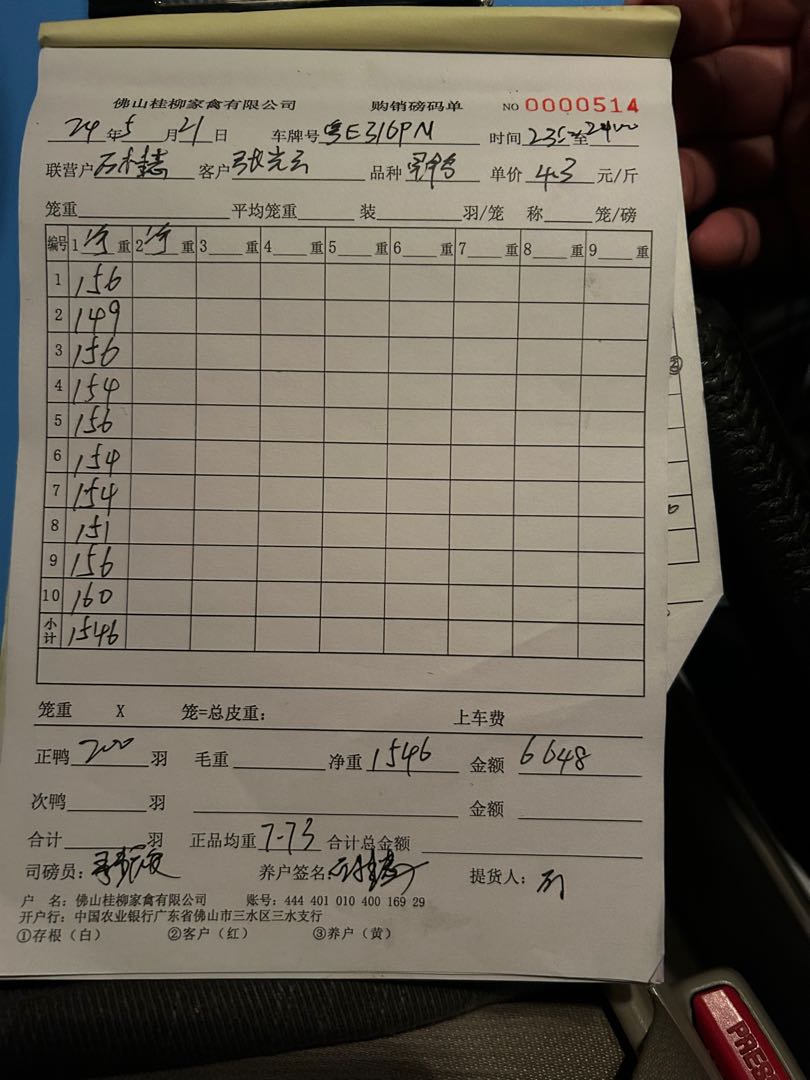 佛山桂柳家禽有限公司 购销磅码单 NO 0000514
24年5月21日 车牌号 粤E316PM 时间 23 至 2400
联营户 客户 张光云 品种 单价 4.3 元/斤
笼重 平均笼重 装 羽/笼 称 笼/磅
编号 1 净 重 2 净 重 3 重 4 重 5 重 6 重 7 重 8 重 9 重
1 156
2 149
3 156
4 154
5 156
6 154
7 154
8 151
9 156
10 160
小计 1546
笼重 X 笼=总皮重: 上车费
正鸭 200 羽 毛重 净重 1546 金额 6648
次鸭 羽 金额
合计 羽 正品均重 7-73 合计总金额
司磅员: 养户签名: 提货人:
户 名: 佛山桂柳家禽有限公司 账号: 444 401 010 400 169 29
开户行: 中国农业银行广东省佛山市三水区三水支行
①存根(白) ②客户(红) ③养户(黄)
PRESS